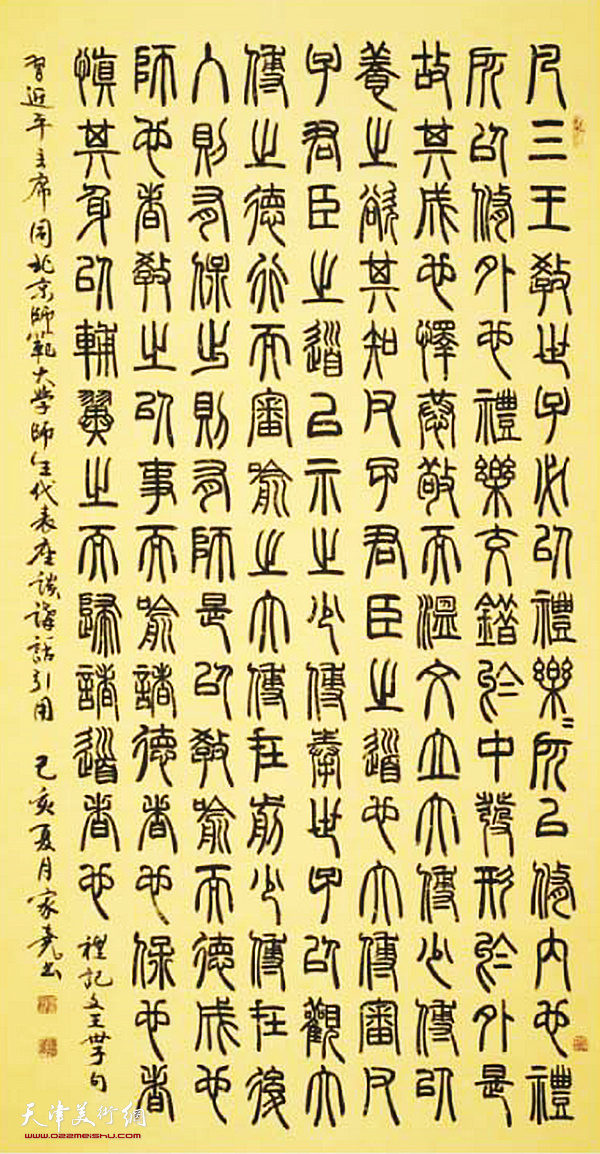 凡三王教世子必以禮樂〻所以修內也禮
所以修外也禮樂交錯於中發形於外是
故其成也懌恭敬而溫文立大傅少傅以
養之欲其知父子君臣之道也大傅審父
子君臣之道以示之少傅奉世子以觀大
傅之德行而審喻之大傅在前少傅在後
入則有保出則有師是以教喻而德成也
師也者教之以事而喻諸德者也保也者
慎其身以輔翼之而歸諸道者也
禮記文王世子句
習近平主席同北京師範大学師生代表座談講話引用 己亥夏月家堯书
天津美術網
www.022meishu.com